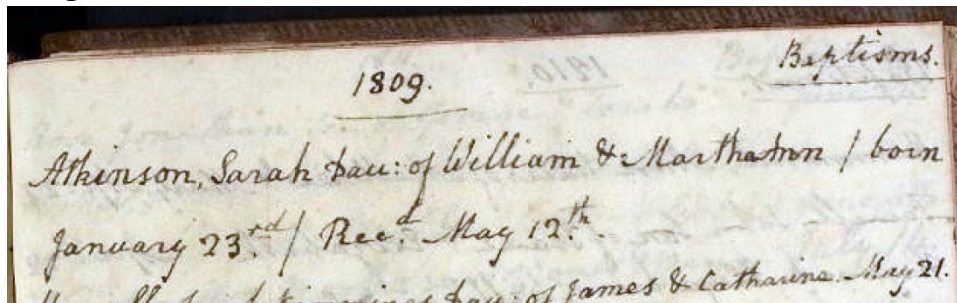 Baptisms.
1809.
Atkinson, Sarah Dau: of William & Martha Ann / born
January 23.rd / Rec.d May 12.th.
Dau: of James & Catharine. May 21.